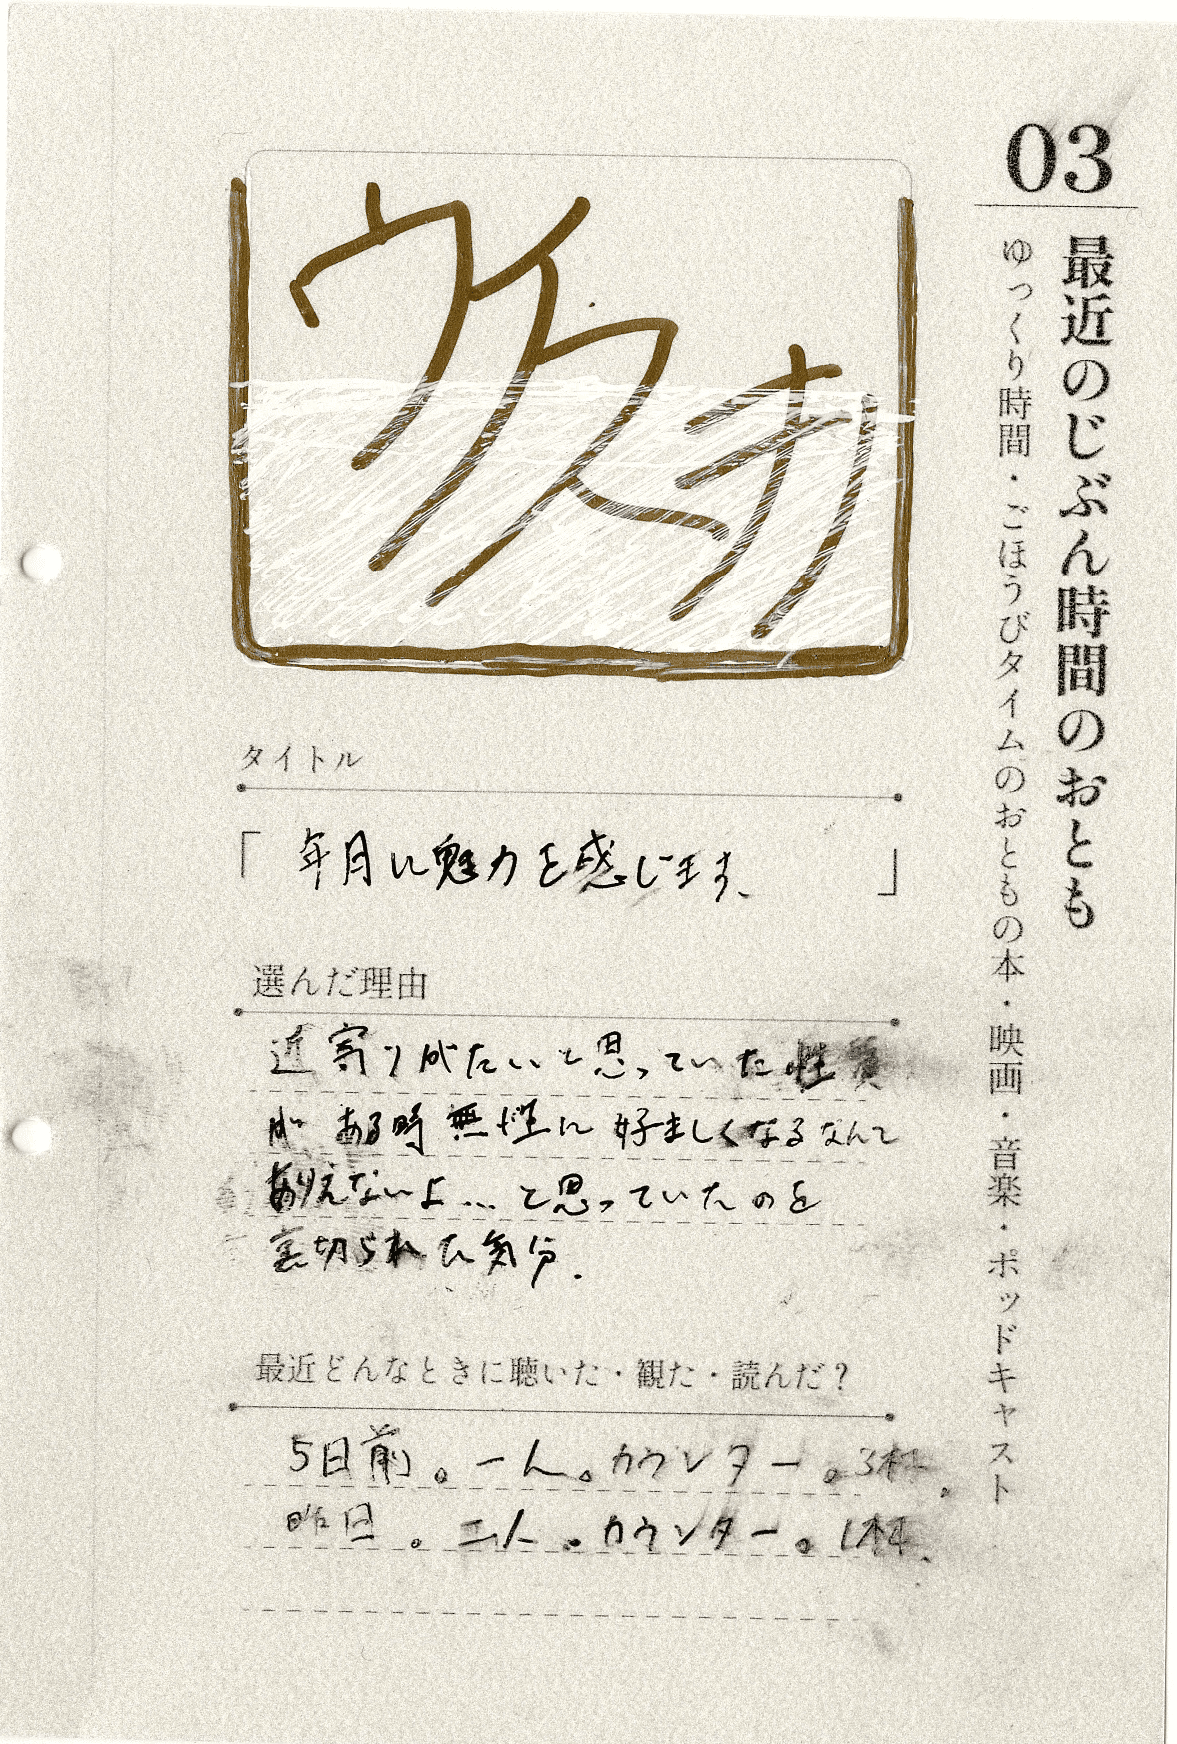 03
最近のじぶん時間のおとも
ゆっくり時間・ごほうびタイムのおともの本・映画・音楽・ポッドキャスト
ウイスキー
タイトル
「年月に魅力を感じます、」
選んだ理由
近寄りがたいと思っていた性質
が ある時 無性に 好ましくなるなんて
ありえないよ... と思っていたのを
裏切られた気分.
最近どんなときに聴いた・観た・読んだ？
5日前。一人。カウンター。3杯。
昨日。二人。カウンター。1杯.